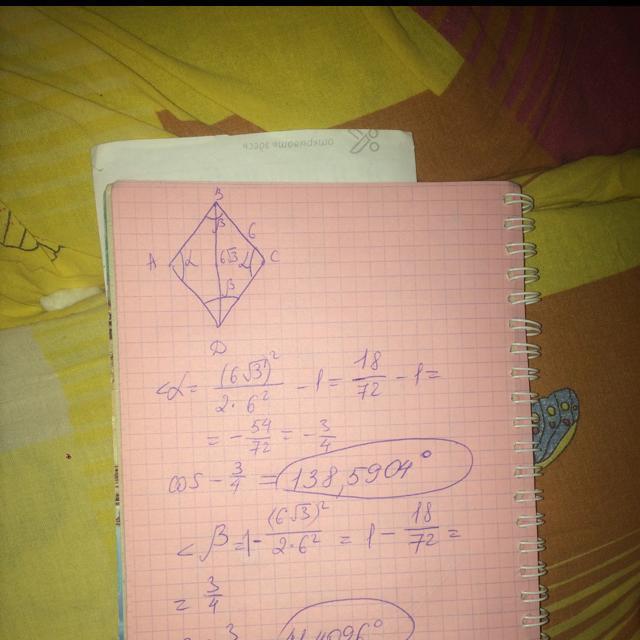 открывать здесь
B
β
6
A α 6√3 α C
β
D
<α = (6√3)² / 2·6² - 1 = 18/72 - 1 =
= - 54/72 = - 3/4
cos - 3/4 = 138,5904°
< β = 1 - (6√3)² / 2·6² = 1 - 18/72 =
= 3/4
3 41,4096°